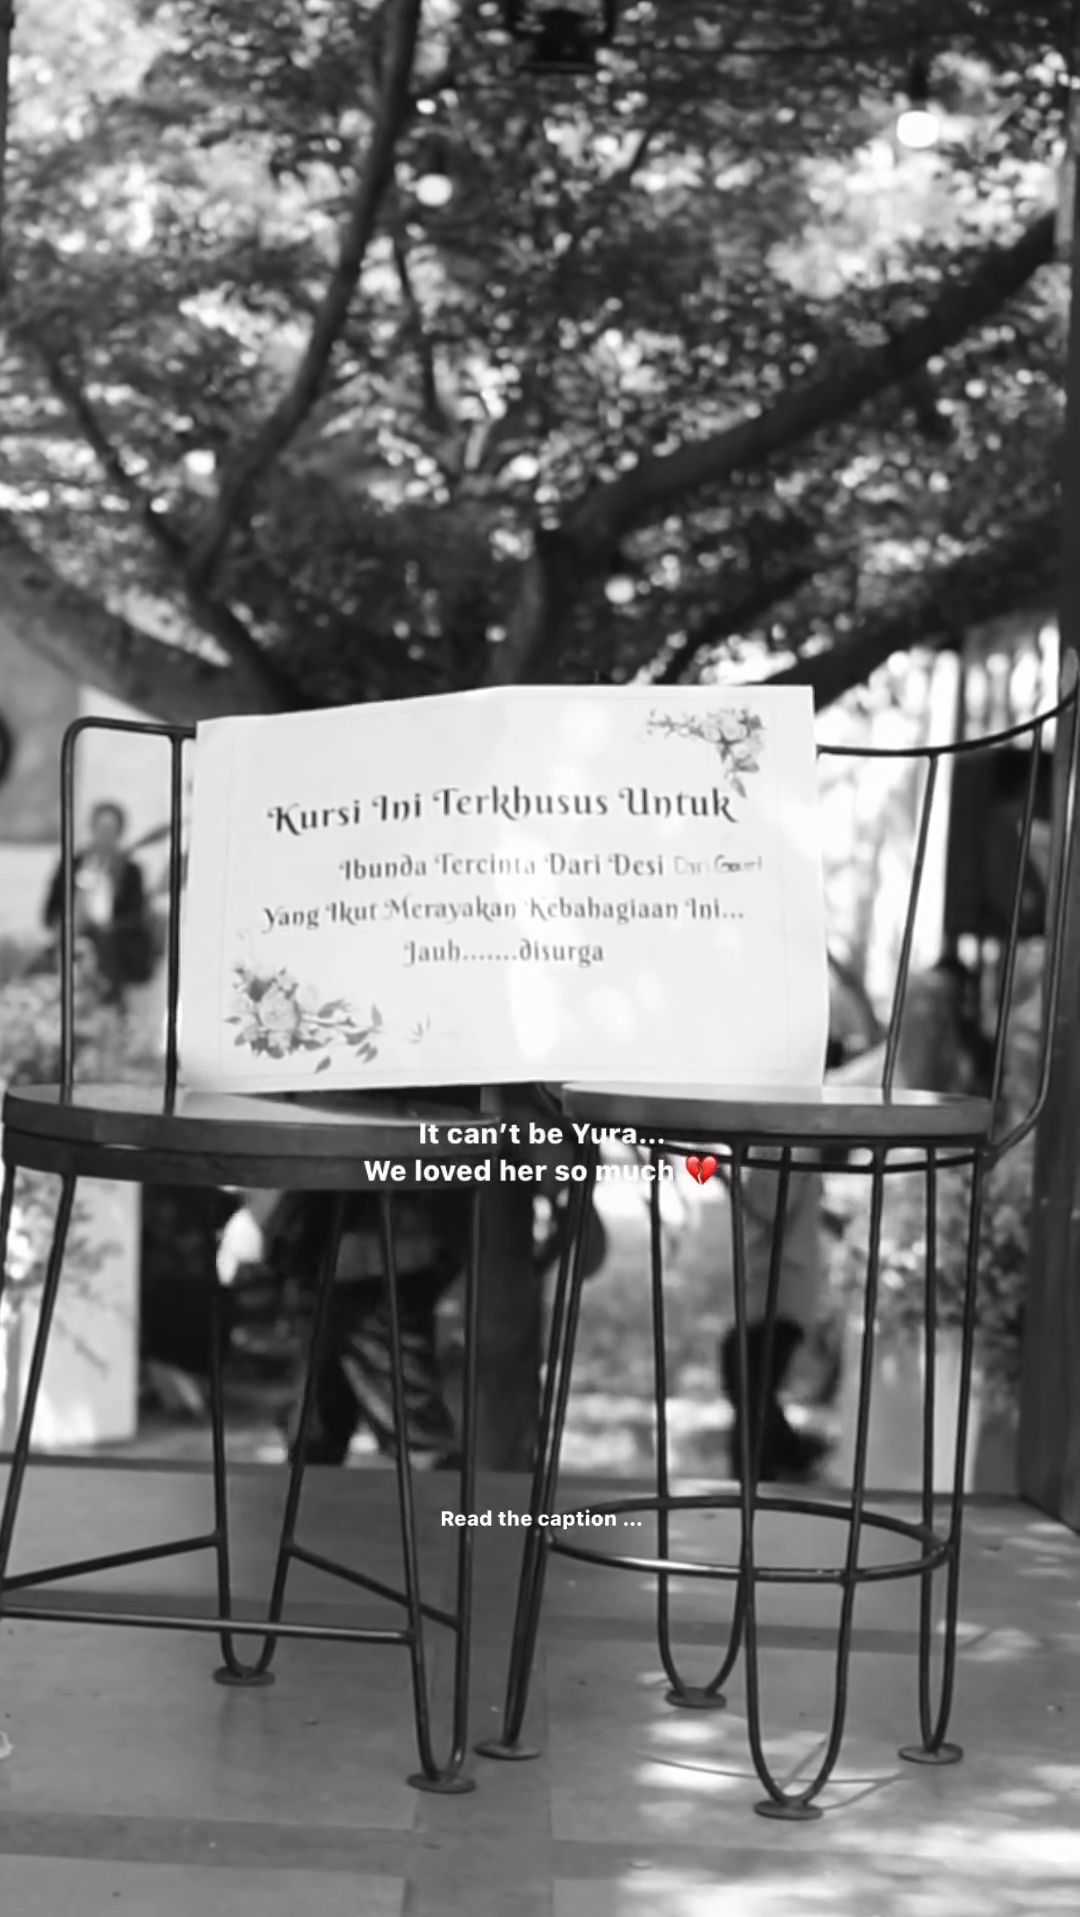 Kursi Ini Terkhusus Untuk
Ibunda Tercinta Dari Desi
Yang Ikut Merayakan Kebahagiaan Ini...
Jauh.......disurga
It can't be Yura...
We loved her so much 💔
Read the caption ...